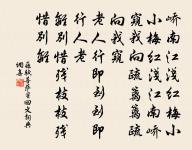 嶠南江淺紅梅小
小梅紅淺江南嶠
窺我向疏籬籬疏
向我窺
老人行即到到即
行人老
離別惜殘枝枝殘
惜別離
蘇軾菩薩蠻回文